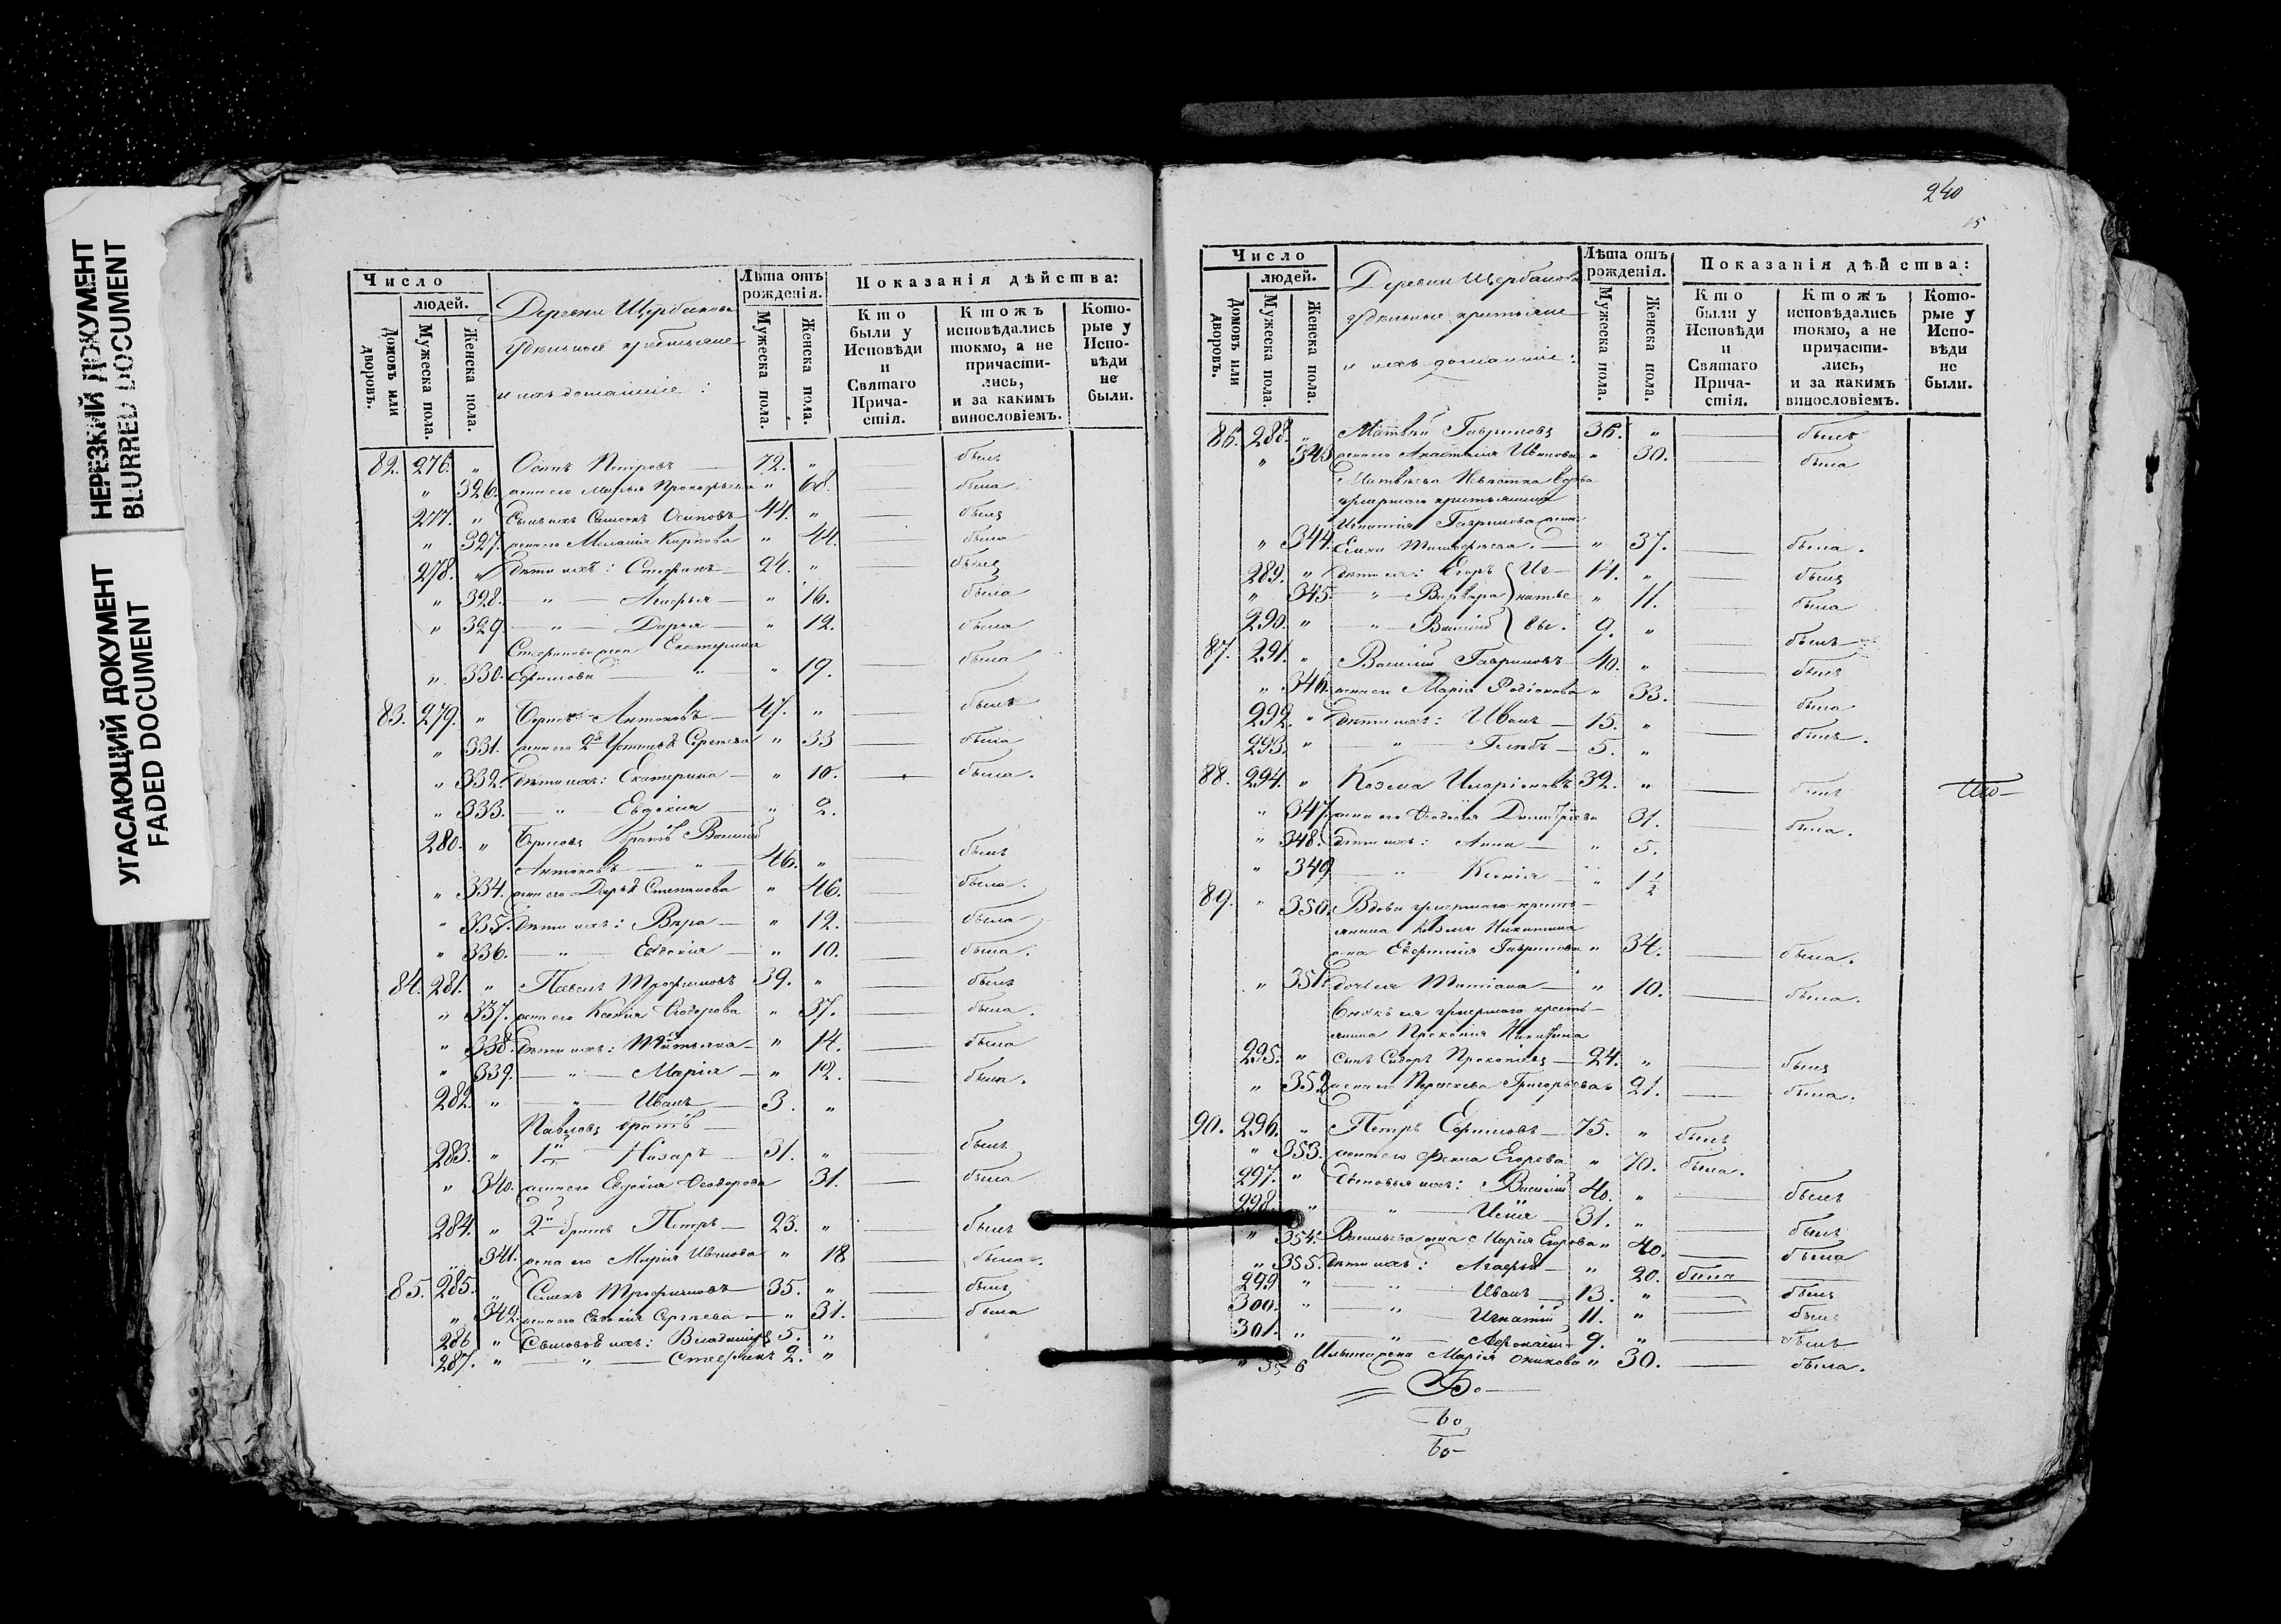 НЕРЕЗКИЙ ДОКУМЕНТ
BLURRED DOCUMENT
УГАСАЮЩИЙ ДОКУМЕНТ
FADED DOCUMENT
Число
людей.
Домовъ или дворовъ.
Мужеска пола.
Женска пола.
Деревни Щербакова
удельные крестьяне
и ихъ домашніе:
Лѣта отъ рожденія.
Мужеска пола.
Женска пола.
Показанія дѣйства:
Кто были у Исповѣди и Святаго Причастія.
Ктожъ исповѣдались токмо, а не причастились, и за какимъ винословіемъ.
Которые у Исповѣди не были.
82. 276. " Осипъ Петровъ 72. " былъ
" 326. жена его Марья Прокофьева " 68. была
277. " Сынъ ихъ Симеонъ Осиповъ 44. " былъ
" 327. жена его Меланія Карпова " 44. была
278. " Дѣти ихъ: Стефанъ 24. " былъ
" 328. " Агафья " 16. была
" 329. " Дарья " 12. была
Стефанова жена Екатерина
" 330. Ефимова " " 19. была
83. 279. " Борисъ Антоновъ 47. " былъ
" 331. жена его 2я Устинья Сергеева " 33 была
" 332. Дѣти ихъ: Екатерина " 10. была.
" 333. " Евдокія " 2.
280. " Борисовъ братъ Василій
Антоновъ " 46. " былъ
" 334. жена его Дарья Степанова " 46. была.
" 335. Дѣти ихъ: Вѣра " 12. была
" 336. " Евдокія " 10. была.
84. 281. " Павелъ Трофимовъ 39. " былъ
" 337. жена его Ксенія Ѳеодорова " 37. была.
" 338. Дѣти ихъ: Татьяна " 14. была
" 339. " Марія " 12. была.
282. " " Иванъ 3. "
Павловъ братъ
283. " 1й Назаръ 31. " былъ
" 340. жена его Евдокія Ѳеодорова 31. была
284. " 2й братъ Петръ 23. " былъ
" 341. жена его Марія Иванова " 18 была.
85. 285. " Семенъ Трофимовъ 35. " былъ
" 342. жена его Евдокія Сергеева " 31. была
286 " Сыновья ихъ: Владиміръ 5. "
287. " " Стефанъ 2. "
240
15
Число
людей.
Домовъ или дворовъ.
Мужеска пола.
Женска пола.
Деревни Щербакова
удельные крестьяне
и ихъ домашніе:
Лѣта отъ рожденія.
Мужеска пола.
Женска пола.
Показанія дѣйства:
Кто были у Исповѣди и Святаго Причастія.
Ктожъ исповѣдались токмо, а не причастились, и за какимъ винословіемъ.
Которые у Исповѣди не были.
86. 288. " Матвѣй Гавриловъ 36. " былъ
" 343 жена его Анастасія Иванова " 30. была
Матвѣева Невѣстка вдова
умершаго крестьянина
Игнатія Гаврилова жена
" 344. Елена Тимофеева. " 37. была.
289. " Дѣти ея: Егоръ Иг- 14. " былъ
" 345. " Варвара натье " 11. была
290. " " Василій вы. 9. " былъ
87. 291. " Василій Гавриловъ 40. " былъ
" 346. жена его Марія Родіонова " 33. была
292. " Дѣти ихъ: Иванъ 15. " былъ.
293. " " Глебъ 5. "
88. 294. " Козма Иларіоновъ 32. " былъ
" 347. жена его Ѳеодосія Димитріева 31. была.
" 348. Дѣти ихъ: Анна " 5.
" 349 " Ксенія " 1 1/2
89. " 350. Вдова умершаго кресть-
янина Козмы Никитина
жена Евфимія Гаврилова " 34. была.
" 351. дочь ея Татіана " 10. была.
умершаго кресть-
янина Прокопія Никитина
295. " сынъ Сидоръ Прокопіевъ 24. " былъ
" 352 жена его Параскева Григорьева " 21. была.
90. 296. " Петръ Ефимовъ 75. " былъ
" 353. жена его Фекла Егорова " 70. была.
297. " Сыновья ихъ: Василій 40. " былъ
298. " " Исаія 31. " былъ
" 354. Васильева жена Марія Егорова " 40. была
" 355. Дѣти ихъ: Агафья " 20. была
299 " " Иванъ 13. " былъ
300. " " Игнатій 11. " былъ
301. " " 9. " былъ
" 356 жена Марія " 30. была.
60
60